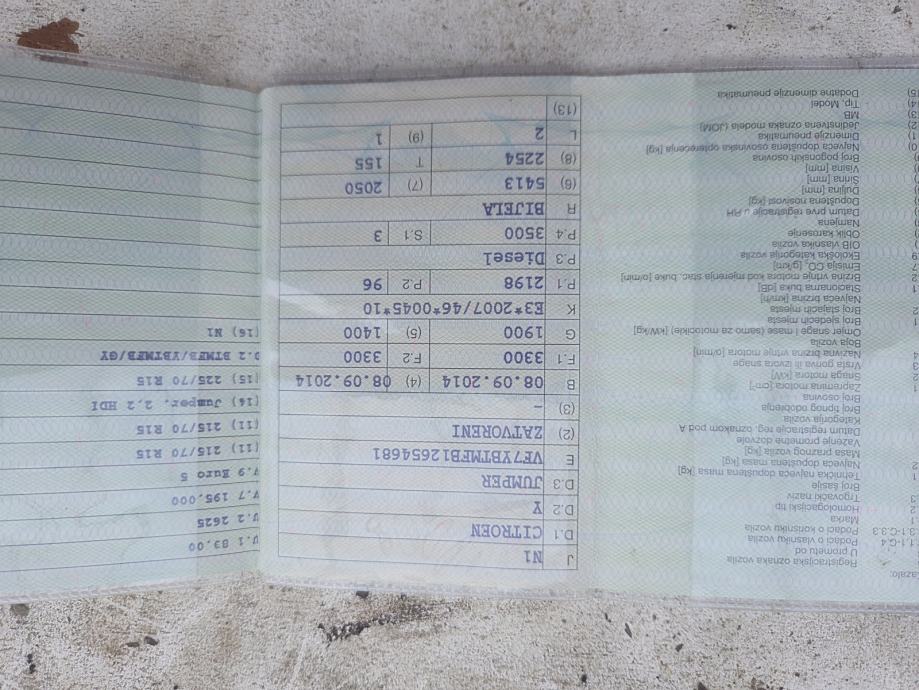 azalo:
Registracijska oznaka vozila
U prometu od
1.1-C.4 Podaci o vlasniku vozila
3.1-C.3.3 Podaci o korisniku vozila
Marka
2 Homologacijski tip
Trgovački naziv
Broj šasije
1 Tehnička najveća dopuštena masa [kg]
2 Najveća dopuštena masa [kg]
Masa praznog vozila [kg]
Važenje prometne dozvole
Datum registracije reg. oznakom pod A
Kategorija vozila
Broj tipnog odobrenja
Broj osovina
Zapremina motora [cm³]
2 Snaga motora [kW]
3 Vrsta goriva ili izvora snage
4 Nazivna brzina vrtnje motora [o/min]
Boja vozila
Omjer snage i mase (samo za motocikle) [kW/kg]
1 Broj sjedećih mjesta
2 Broj stajaćih mjesta
Najveća brzina [km/h]
1 Stacionarna buka [dB]
2 Brzina vrtnje motora kod mjerenja stac. buke [o/min]
7 Emisija CO₂ [g/km]
9 Ekološka kategorija vozila
OIB vlasnika vozila
Oblik karoserije
Namjena
Datum prve registracije u RH
Dopuštena nosivost [kg]
Duljina [mm]
Širina [mm]
Visina [mm]
Broj pogonskih osovina
0) Najveća dopuštena osovinska opterećenja [kg]
1) Dimenzije pneumatika
2) Jedinstvena oznaka modela (JOM)
3) MB
4) Tip, Model
5) Dodatne dimenzije pneumatika
J N1
D.1 CITROEN
D.2 Y
D.3 JUMPER
E VF7YBTMFB12654681
(2) ZATVORENI
(3) –
B 08.09.2014 (4) 08.09.2014
F.1 3300 F.2 3300
G 1900 (5) 1400
K E3*2007/46*0045*10
P.1 2198 P.2 96
P.3 Diesel
P.4 3500 S.1 3
R BIJELA
(6) 5413 (7) 2050
(8) 2254 T 155
L 2 (9) 1
(13)
U.1 83,00
U.2 2625
V.7 195,000
V.9 Euro 5
(11) 215/70 R15
(11) 215/70 R15
(14) Jumper, 2,2 HDI
(15) 225/70 R15
D.2 BTMFB/YBTMFB/GY
(16) N1